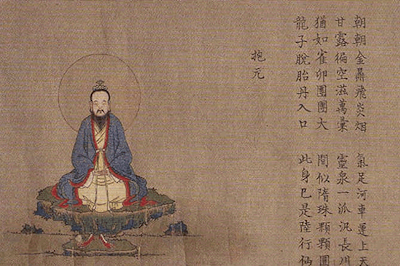 朝朝金鼎飛炎烟 氣足河車運上天
甘露徧空滋萬彙 靈泉一派汎長川
猶如雀卵團團大 間似隋珠顆顆圓
龍子脫胎丹入口 此身已是陸行
抱元